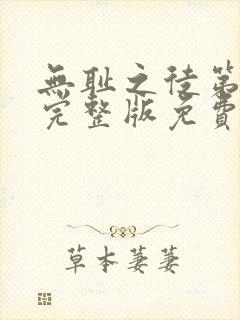 無耻之徒第
完整版免費
草本萋萋